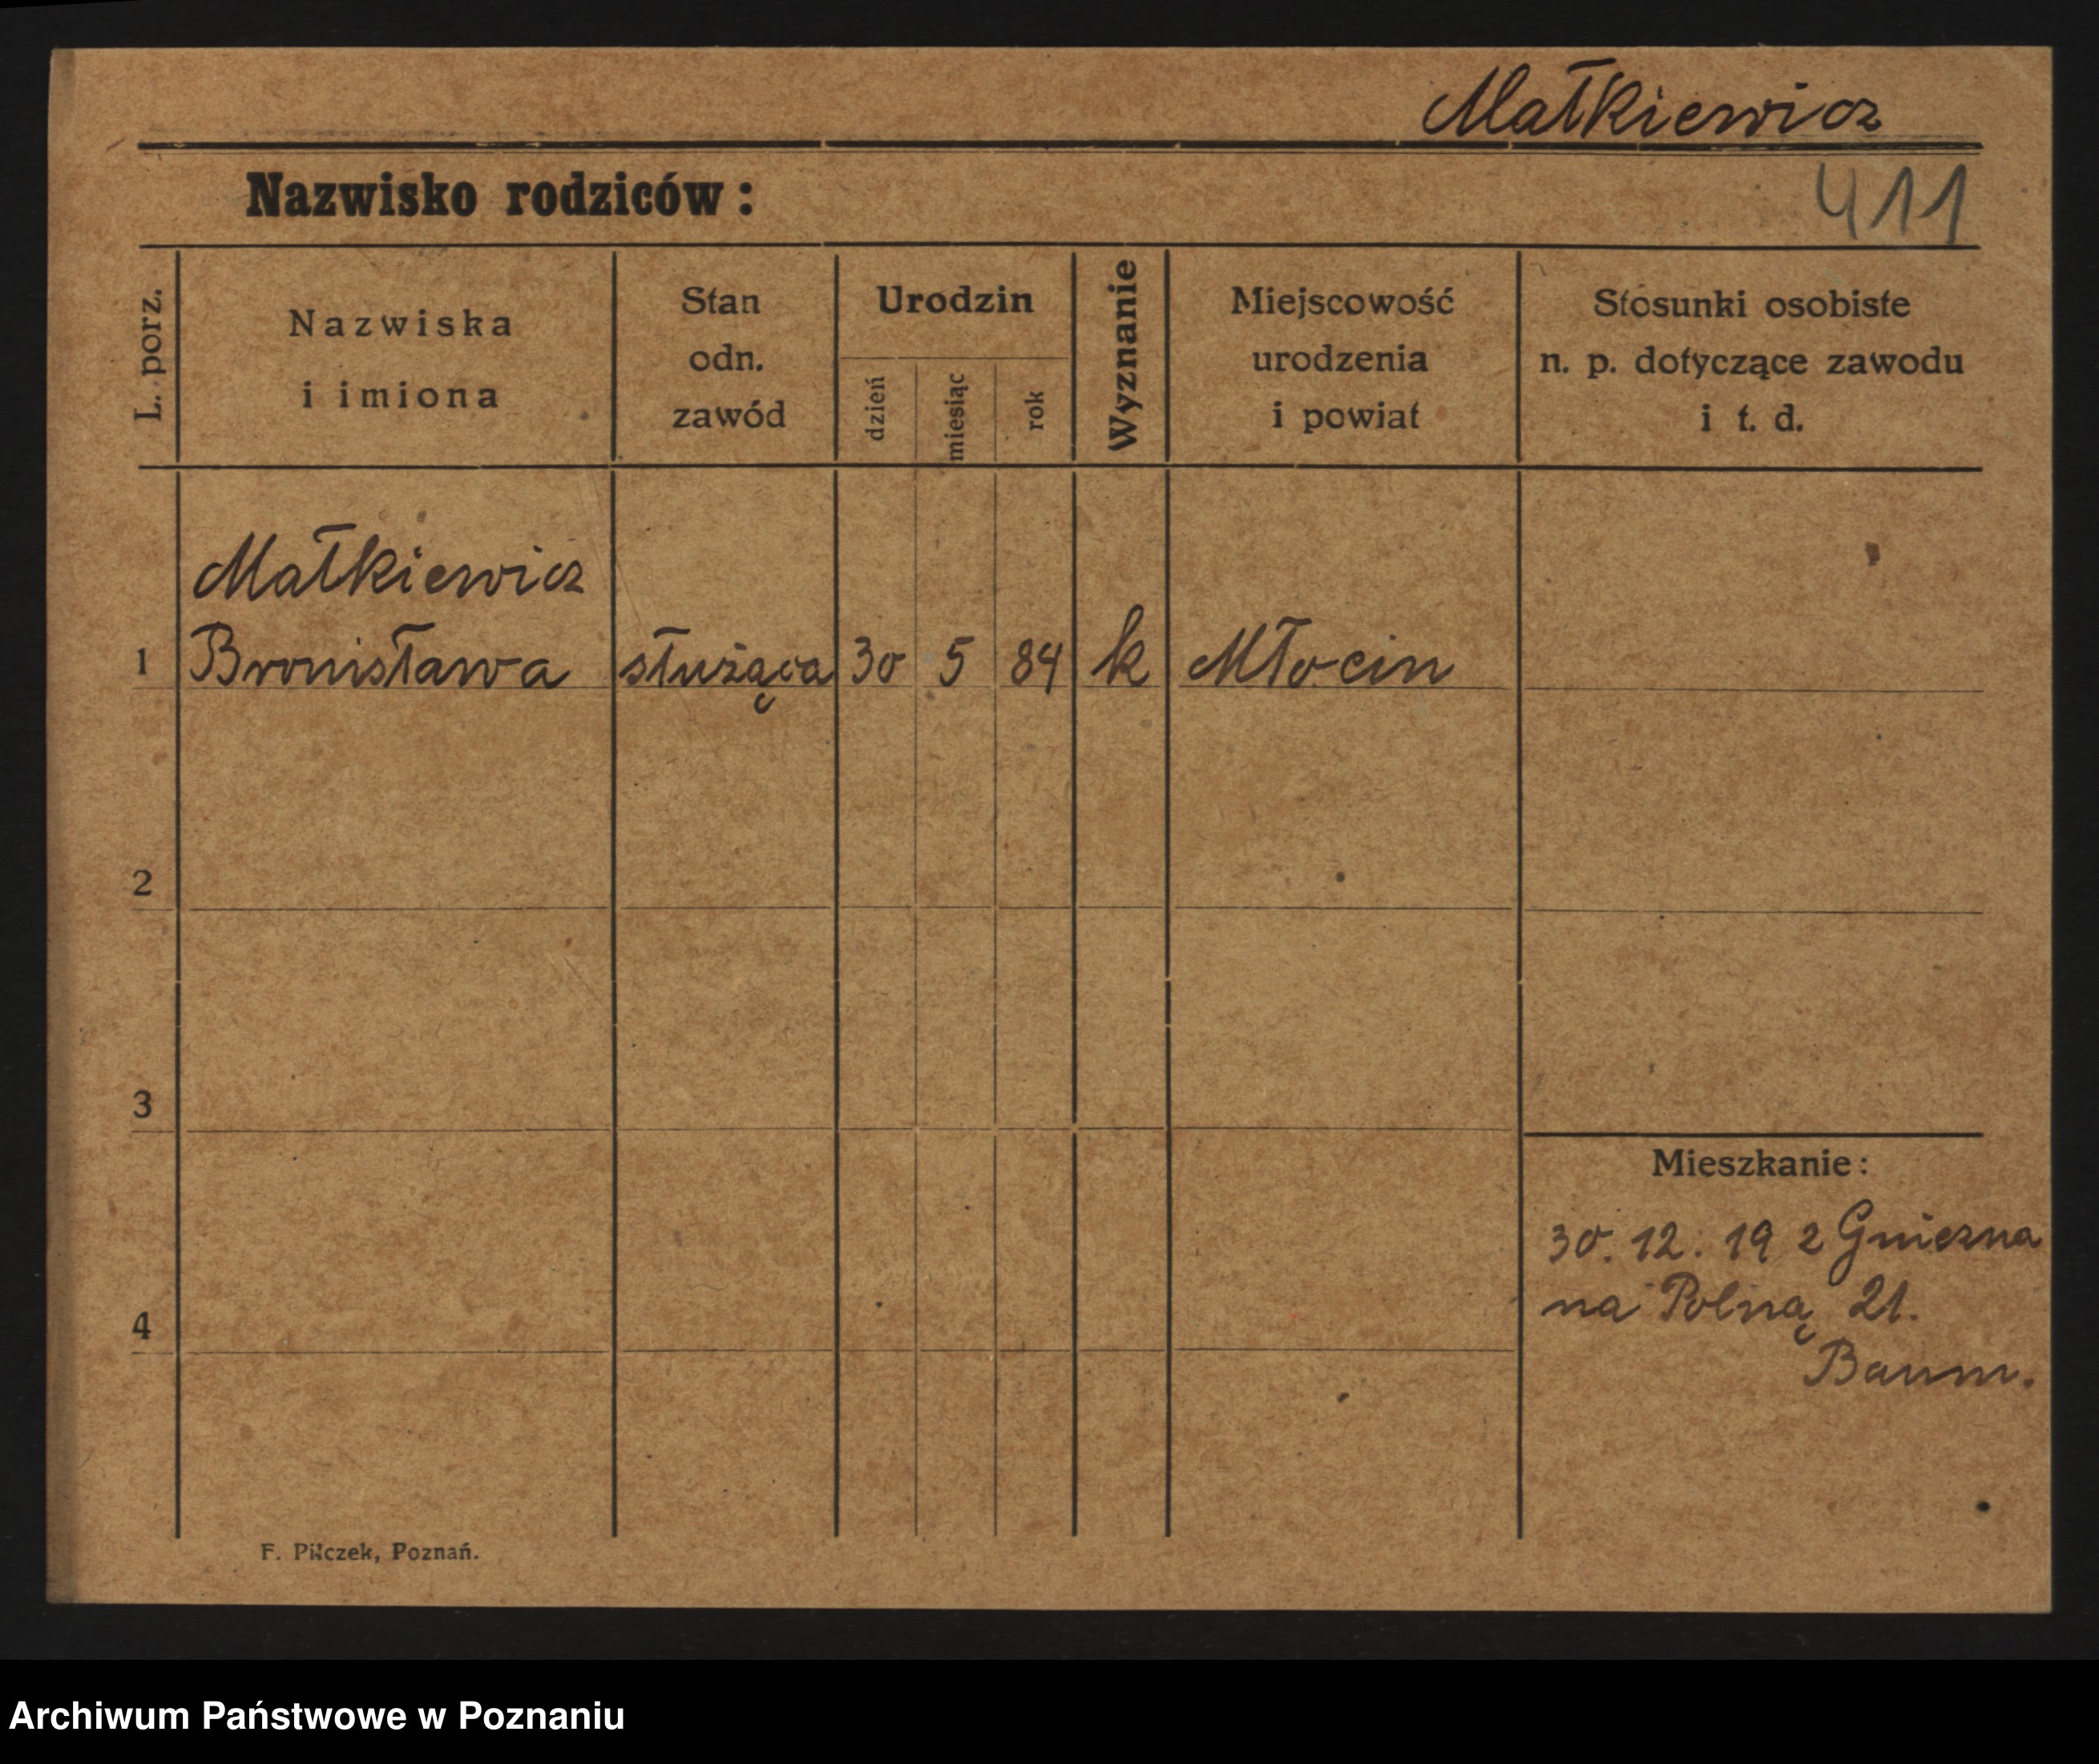 Małkiewicz
Nazwisko rodziców:
411
L. porz.
Nazwiska
i imiona
Stan
odn.
zawód
Urodzin
dzień
miesiąc
rok
Wyznanie
Miejscowość
urodzenia
i powiat
Stosunki osobiste
n. p. dotyczące zawodu
i t. d.
Małkiewicz
1 Bronisława służąca 30 5 84 k Młocin
2
3
4
Mieszkanie:
30. 12. 19 z Gniezna
na Polną 21.
Baum.
F. Pilczek, Poznań.
Archiwum Państwowe w Poznaniu